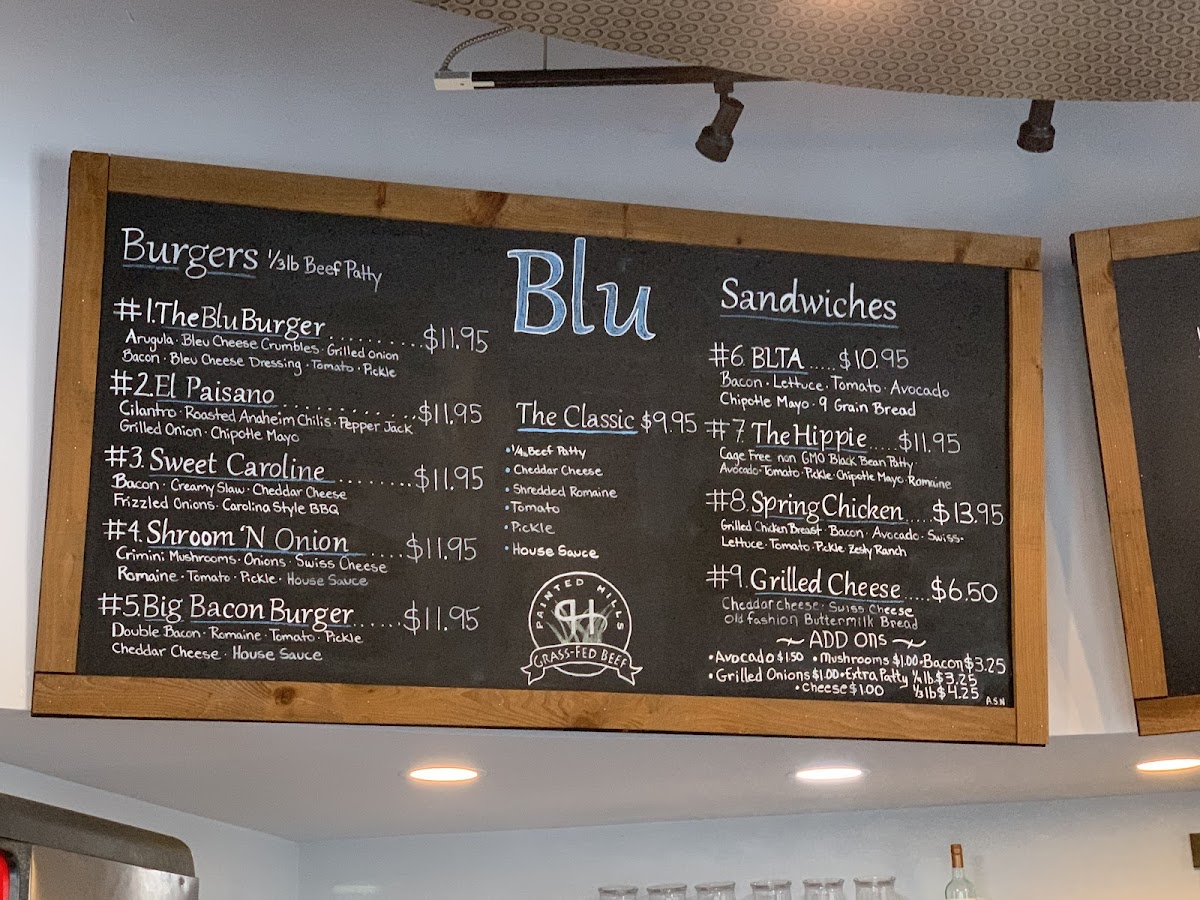 Burgers 1/3lb Beef Patty
#1. The Blu Burger . . . . . . . . . . $11.95
Arugula · Bleu Cheese Crumbles · Grilled Onion
Bacon · Bleu Cheese Dressing · Tomato · Pickle
#2. El Paisano . . . . . . . . . . . . . $11.95
Cilantro · Roasted Anaheim Chilis · Pepper Jack
Grilled Onion · Chipotle Mayo
#3. Sweet Caroline . . . . . . . . $11.95
Bacon · Creamy Slaw · Cheddar Cheese
Frizzled Onions · Carolina Style BBQ
#4. Shroom 'N Onion . . . . . $11.95
Crimini Mushrooms · Onions · Swiss Cheese
Romaine · Tomato · Pickle · House Sauce
#5. Big Bacon Burger . . . . . . $11.95
Double Bacon · Romaine · Tomato · Pickle
Cheddar Cheese · House Sauce
Blu
The Classic $9.95
• 1/4 lb Beef Patty
• Cheddar Cheese
• Shredded Romaine
• Tomato
• Pickle
• House Sauce
PAINTED HILLS
PH
GRASS-FED BEEF
Sandwiches
#6. BLTA ..... $10.95
Bacon · Lettuce · Tomato · Avocado
Chipotle Mayo · 9 Grain Bread
#7. The Hippie ..... $11.95
Cage Free non GMO Black Bean Patty
Avocado · Tomato · Pickle · Chipotle Mayo · Romaine
#8. Spring Chicken ..... $13.95
Grilled Chicken Breast · Bacon · Avocado · Swiss ·
Lettuce · Tomato · Pickle Zesty Ranch
#9. Grilled Cheese ..... $6.50
Cheddar Cheese · Swiss Cheese
Old fashion Buttermilk Bread
~ ADD ONs ~
• Avocado $1.50 • Mushrooms $1.00 • Bacon $3.25
• Grilled Onions $1.00 • Extra Patty 1/4 lb $3.25
• Cheese $1.00 1/3 lb $4.25
A.S.N